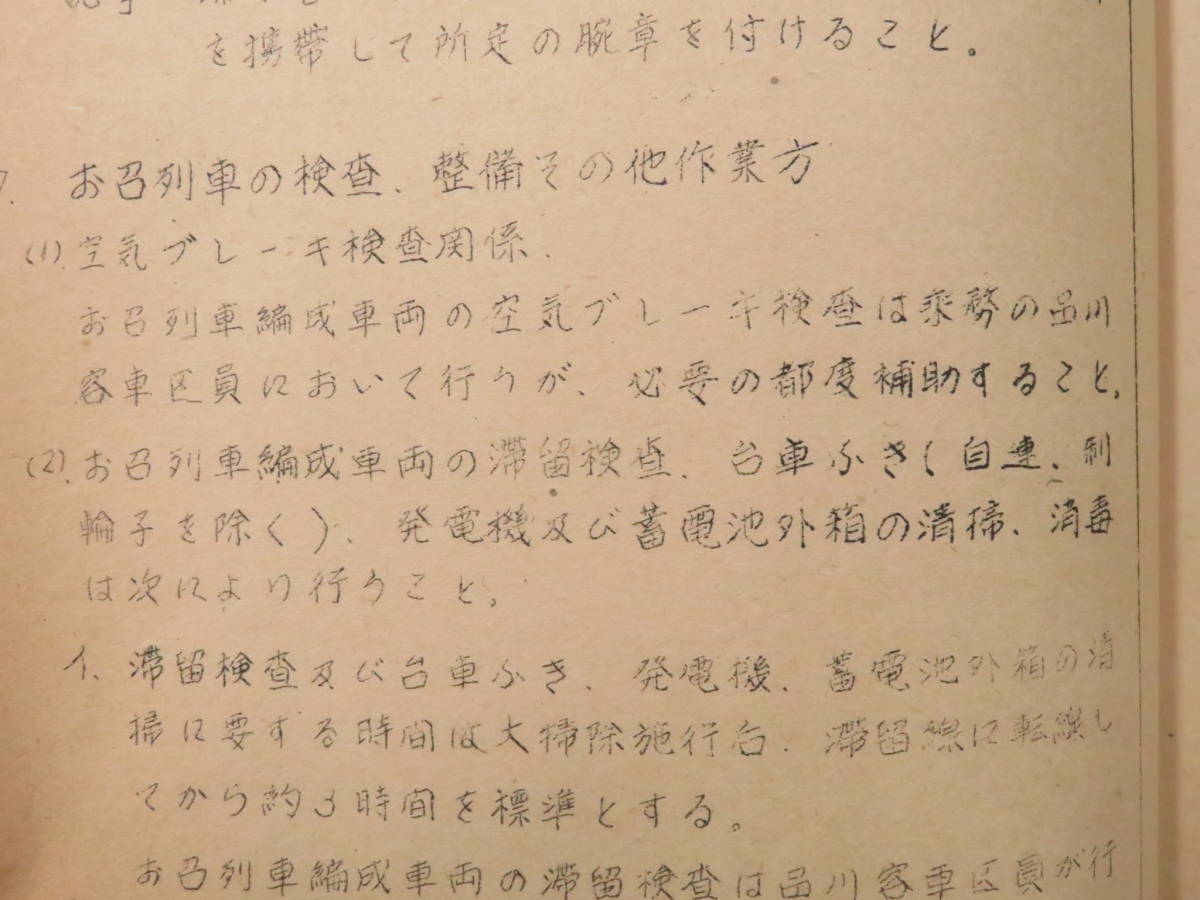 を携帯して所定の腕章を付けること。
7. お召列車の検査、整備その他作業方
(1). 空気ブレーキ検査関係.
お召列車編成車両の空気ブレーキ検査は乗務の品川
客車区員において行うが、必要の都度補助すること。
(2). お召列車編成車両の滞留検査、台車ふき(自連、制
輪子を除く)、発電機及び蓄電池外箱の清掃、消毒
は次により行うこと。
イ、滞留検査及び台車ふき、発電機、蓄電池外箱の清
掃に要する時間は大掃除施行台、滞留線に転線し
てから約3時間を標準とする。
お召列車編成車両の滞留検査は品川客車区員が行